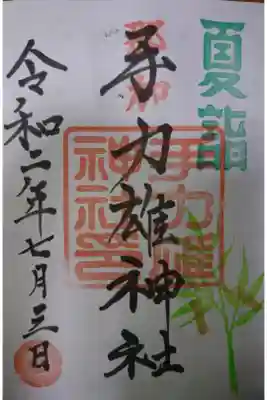 夏詣
奉拝
手力雄神社
手力雄神社印
令和二年七月三日